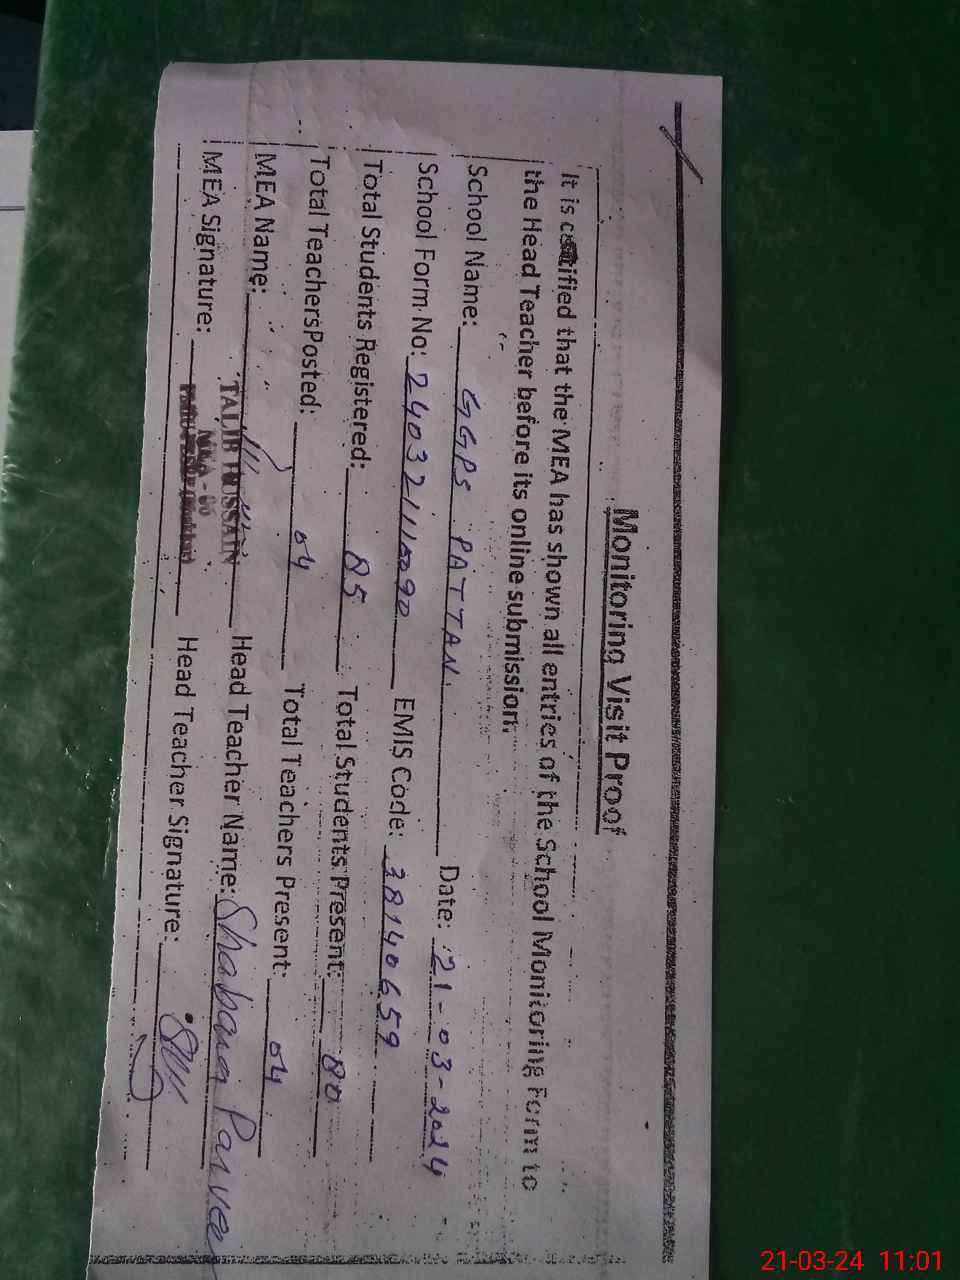 Monitoring Visit Proof
It is certified that the MEA has shown all entries of the School Monitoring Form to
the Head Teacher before its online submission.
School Name: GGPS PATTAN. Date: 21-03-2024
School Form No: EMIS Code: 38140659
Total Students Registered: 85 Total Students Present: 80
Total TeachersPosted: 04 Total Teachers Present: 04
MEA Name: TALIB HUSSAIN Head Teacher Name: Shabana Parvee
MEA - 06
MEA Signature: Head Teacher Signature:
21-03-24 11:01